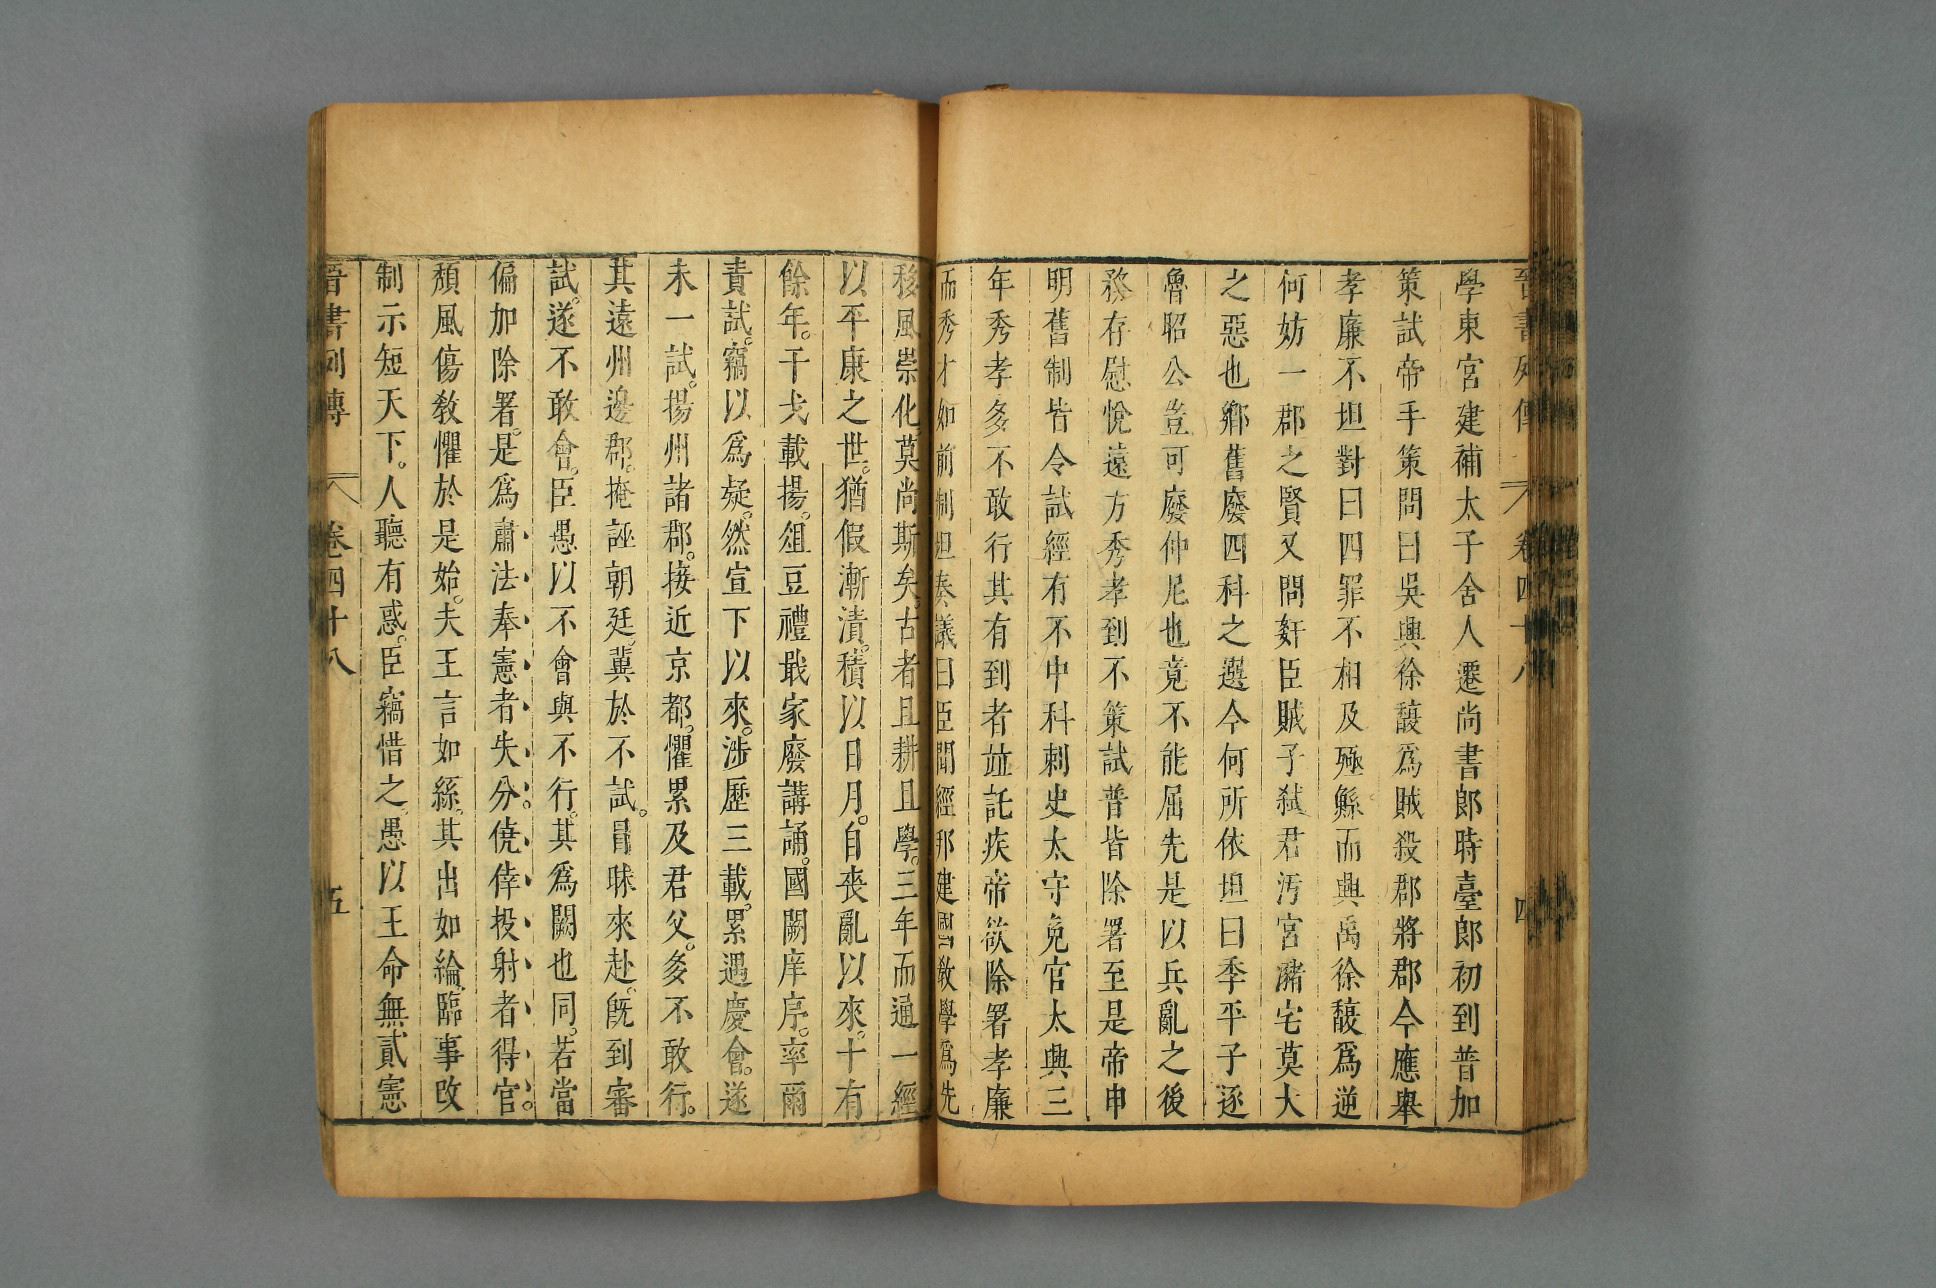 晉書列傳 卷四十八 四
學東宮建補太子舍人遷尚書郎時臺郎初到普加
策試帝手策問曰吳興徐馥為賊殺郡將郡今應舉
孝廉不坦對曰四罪不相及殛鯀而興禹徐馥為逆
何妨一郡之賢又問姧臣賊子弑君汚宮瀦宅莫大
之惡也鄉舊廢四科之選今何所依坦曰季平子逐
魯昭公豈可廢仲尼也竟不能屈先是以兵亂之後
務存慰悅遠方秀孝到不策試普皆除署至是帝申
明舊制皆令試經有不中科刺史太守免官太興三
年秀孝多不敢行其有到者竝託疾帝欲除署孝廉
而秀才如前制坦奏議曰臣聞經邦建國敎學爲先
移風崇化莫尚斯矣。古者且耕且學。三年而通一經
以平康之世。猶假漸漬。積以日月。自喪亂以來。十有
餘年。干戈載揚。俎豆禮戢。家廢講誦。國闕庠序。率爾
責試。竊以爲疑。然宣下以來。涉歷三載。累遇慶會。遂
未一試。揚州諸郡。接近京都。懼累及君父。多不敢行。
其遠州邊郡。掩誣朝廷。冀於不試。冒昧來赴。旣到審
試。遂不敢會。臣愚以不會與不行。其爲闕也同。若當
偏加除署。是爲肅法奉憲者失分。僥倖投射者得官。
頹風傷敎懼於是始。夫王言如絲。其出如綸。臨事改
制示短天下。人聽有惑。臣竊惜之。愚以王命無貳憲
晉書列傳 卷四十八 五